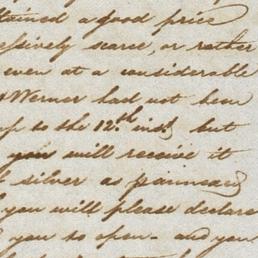 tained a good price
essively scarce, or rather
even at a considerable
Werner had not been
up to the 12th inst but
you will receive it
silver as
you will please declare
you to open and you